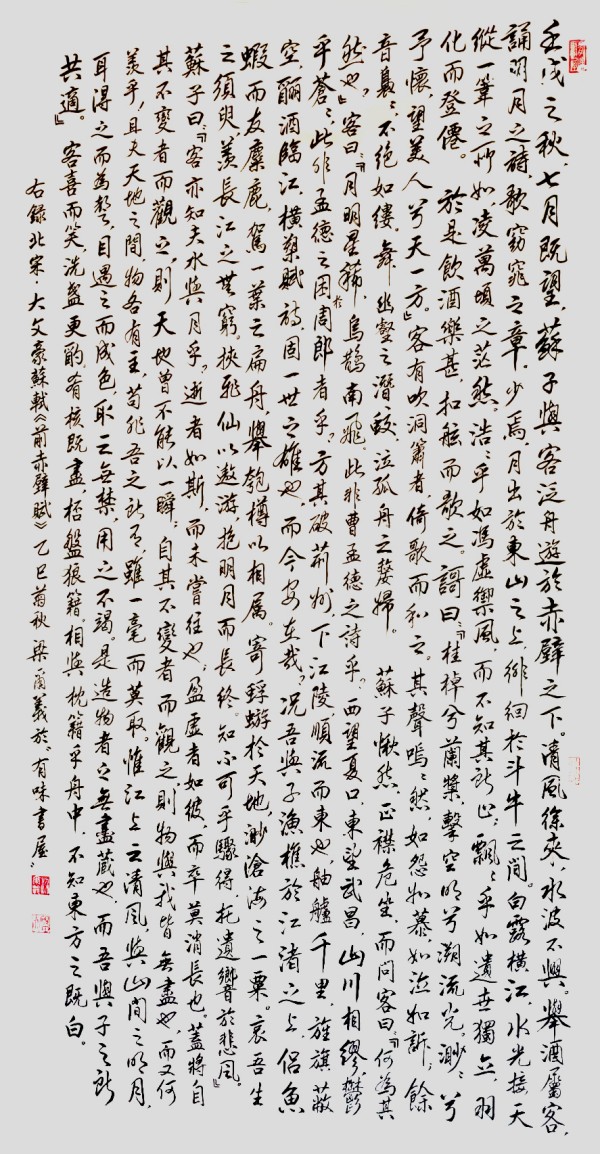 壬戌之秋，七月既望，蘇子與客泛舟遊於赤壁之下。清風徐來，水波不興。舉酒屬客，
誦明月之詩，歌窈窕之章。少焉，月出於東山之上，徘徊於斗牛之間。白露橫江，水光接天
縱一葦之所如，凌萬頃之茫然。浩々乎如馮虛禦風，而不知其所止；飄々乎如遺世獨立，羽
化而登僊。於是飲酒樂甚，扣舷而歌之。謌曰：『桂棹兮蘭槳，擊空明兮溯流光，渺々兮
予懷，望美人兮天一方。』客有吹洞簫者，倚歌而和之。其聲嗚々然，如怨如慕如泣如訴；餘
音裊々，不絕如縷。舞幽壑之潛蛟，泣孤舟之嫠婦。蘇子愀然，正襟危坐，而問客曰：『何為其
然也』客曰：『月明星稀，烏鵲南飛。此非曹孟德之詩乎？西望夏口，東望武昌，山川相繆，鬱
乎蒼々；此非孟德之困於周郎者乎？方其破荊州，下江陵順流而東也，舳艫千里，旌旗蔽
空，釃酒臨江，橫槊賦詩，固一世之雄也，而今安在哉？況吾與子漁樵於江渚之上，侶魚
蝦而友麋鹿，駕一葉之扁舟，舉匏樽以相屬。寄蜉蝣於天地，渺滄海之一粟。哀吾生
之須臾，羨長江之無窮。挾飛仙以遨游，抱明月而長終。知不可乎驟得，托遺響於悲風。』
蘇子曰：『客亦知夫水與月乎？逝者如斯，而未嘗往也；盈虛者如彼，而卒莫消長也。蓋將自
其不變者而觀之，則天地曾不能以一瞬。自其不變者而觀之，則物與我皆無盡也，而又何
羨乎，且夫天地之間，物各有主，苟非吾之所有，雖一毫而莫取。惟江上之清風，與山間之明月，
耳得之而為聲，目遇之而成色，取之無禁，用之不竭。是造物者之無盡藏也，而吾與子之所
共適。』客喜而笑，洗盞更酌。肴核既盡，杯盤狼籍。相與枕籍乎舟中，不知東方之既白。
右錄北宋·大文豪蘇軾《前赤壁賦》乙巳首秋 梁義於"有味書屋"